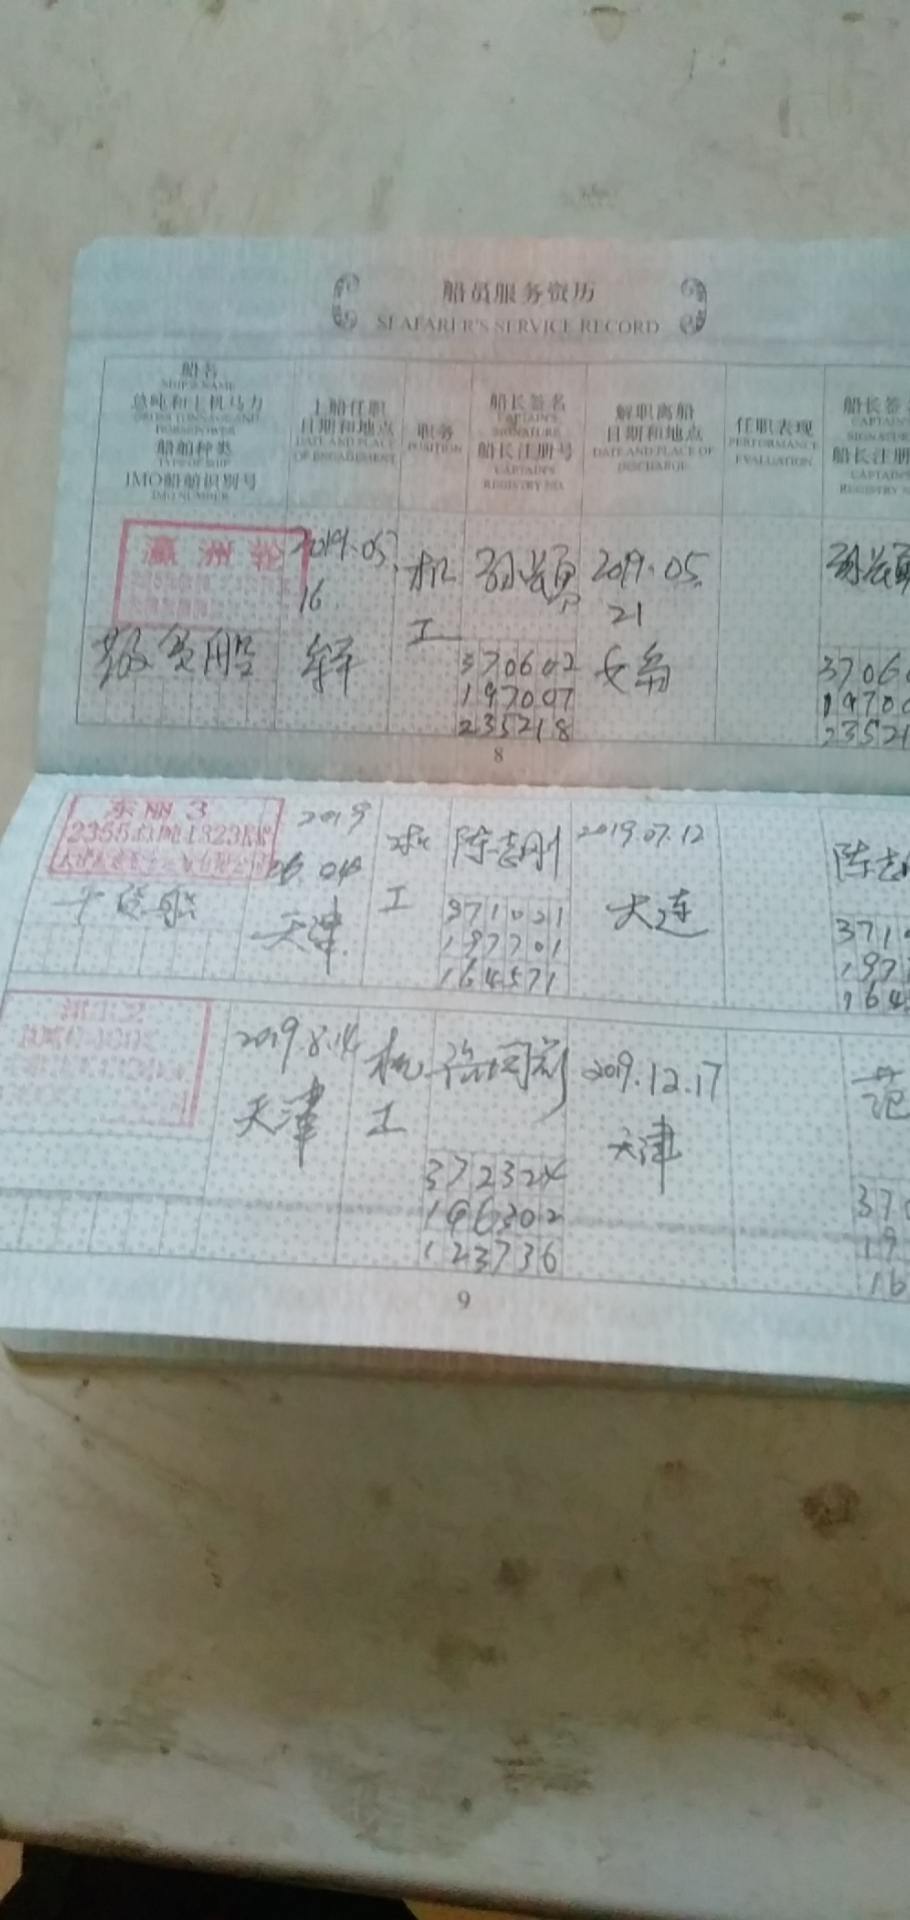 船员服务资历
SEAFARER'S SERVICE RECORD
船名
SHIP'S NAME
总吨和主机马力
GROSS TONNAGE AND
HORSEPOWER
船舶种类
TYPE OF SHIP
IMO船舶识别号
IMO NUMBER
上船任职
日期和地点
DATE AND PLACE
OF ENGAGEMENT
职务
POSITION
船长签名
CAPTAIN'S
SIGNATURE
船长注册号
CAPTAIN'S
REGISTRY NO.
解职离船
日期和地点
DATE AND PLACE OF
DISCHARGE
任职表现
PERFORMANCE
EVALUATION
船长签
CAPTAIN
SIGNATU
船长注册
CAPTAIN
REGISTRY N
瀛洲轮
散货船
2019.05
16
机
工
370602
197007
235218
2019.05
21
3706
1970
23521
8
东丽3
2355总吨1323KW
干货船
2019
06.04
天津
机
工
陈志刚
371021
197701
164571
2019.07.12
大连
陈志
371
197
164
2019.8.14
天津
机
工
372324
196302
123736
2019.12.17
天津
范
370
19
16
9